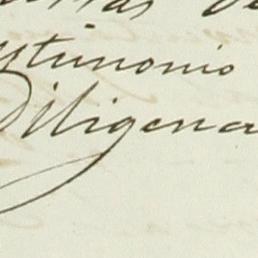 de
stimonio
Diligenci